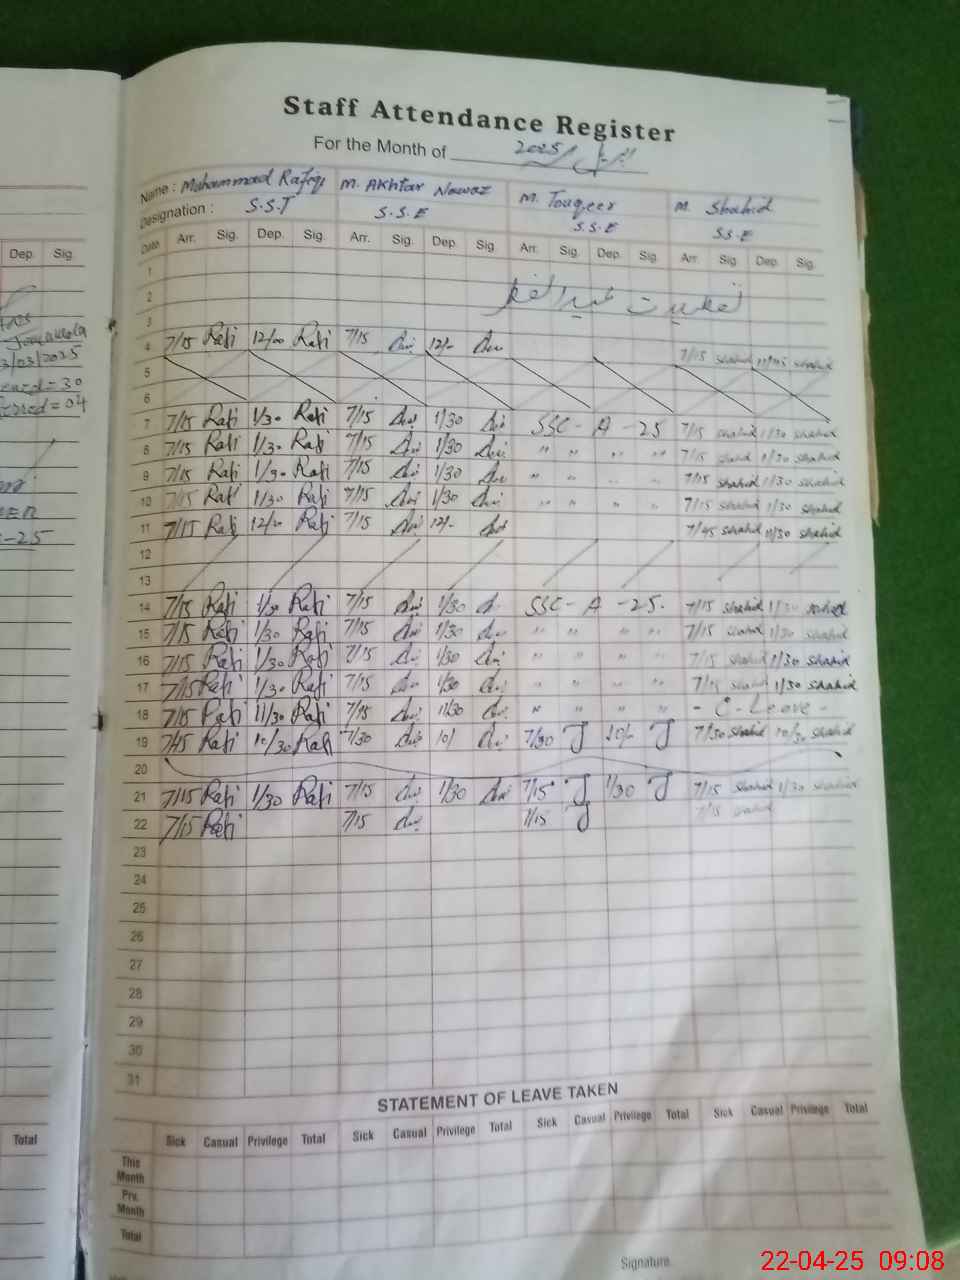 Staff Attendance Register
For the Month of اپریل 2025
Name : Muhammad Rafiq M. Akhtar Nawaz M. Touqeer M. Shahid
Designation : S.S.T S.S.E S.S.E S.S.E
Date Arr. Sig. Dep. Sig. Arr. Sig. Dep. Sig. Arr. Sig. Dep. Sig. Arr. Sig. Dep. Sig.
1
2 تعطیلات عید الفطر
3
4 7/15 Rafi 12/00 Rafi 7/15 12/- 7/15 shahid 11/45 shahid
5
6
7 7/15 Rafi 1/30 Rafi 7/15 1/30 SSC - A - 25 7/15 shahid 1/30 shahid
8 7/15 Rafi 1/30 Rafi 7/15 1/30 " " " " 7/15 shahid 1/30 shahid
9 7/15 Rafi 1/30 Rafi 7/15 1/30 " " " " 7/15 shahid 1/30 shahid
10 7/15 Rafi 1/30 Rafi 7/15 1/30 " " " " 7/15 shahid 1/30 shahid
11 7/15 Rafi 12/00 Rafi 7/15 12/- 7/45 shahid 11/30 shahid
12
13
14 7/15 Rafi 1/30 Rafi 7/15 1/30 SSC - A - 25. 7/15 shahid 1/30 shahid
15 7/15 Rafi 1/30 Rafi 7/15 1/30 " " " " 7/15 shahid 1/30 shahid
16 7/15 Rafi 1/30 Rafi 7/15 1/30 " " " " 7/15 shahid 1/30 shahid
17 7/15 Rafi 1/30 Rafi 7/15 1/30 " " " " 7/15 shahid 1/30 shahid
18 7/15 Rafi 11/30 Rafi 7/15 11/30 " " " " - C - Leave -
19 7/45 Rafi 10/30 Rafi 7/30 10/ 7/30 J 10/- J 7/30 shahid 10/30 shahid
20
21 7/15 Rafi 1/30 Rafi 7/15 1/30 7/15 J 1/30 J 7/15 shahid 1/30 shahid
22 7/15 Rafi 7/15 7/15 J 7/15 shahid
23
24
25
26
27
28
29
30
31
STATEMENT OF LEAVE TAKEN
Sick Casual Privilege Total Sick Casual Privilege Total Sick Casual Privilege Total Sick Casual Privilege Total
This Month
Prv. Month
Total
Signature
Dep. Sig.
3/03/2025
= 30
= 04
-25
Total
22-04-25 09:08